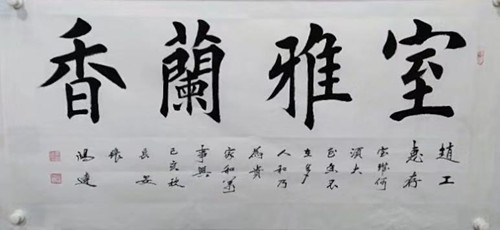 室雅蘭香
趙工
惠存
室雅何
須大
花香不
在多
人和乃
為貴
家和萬
事興
己亥秋
長安
張